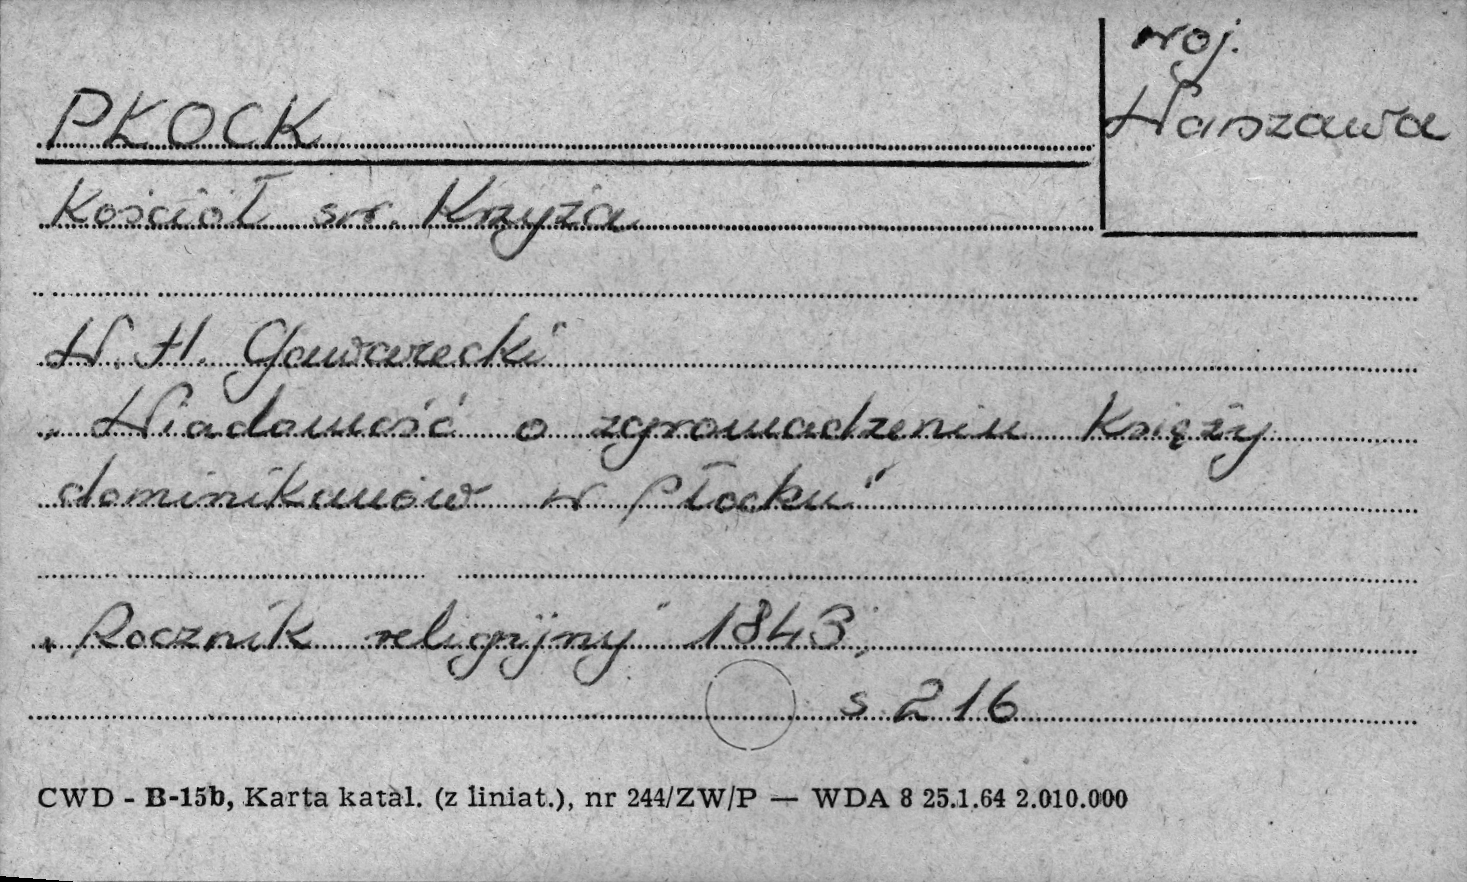 woj.
Warszawa
PŁOCK
Kościół św. Krzyża
W. H. Gawarecki
„Wiadomość o zgromadzeniu Księży
dominikanów w Płocku"
„Rocznik religijny" 1843,
s 216
CWD - B-15b, Karta katal. (z liniat.), nr 244/ZW/P — WDA 8 25.1.64 2.010.000